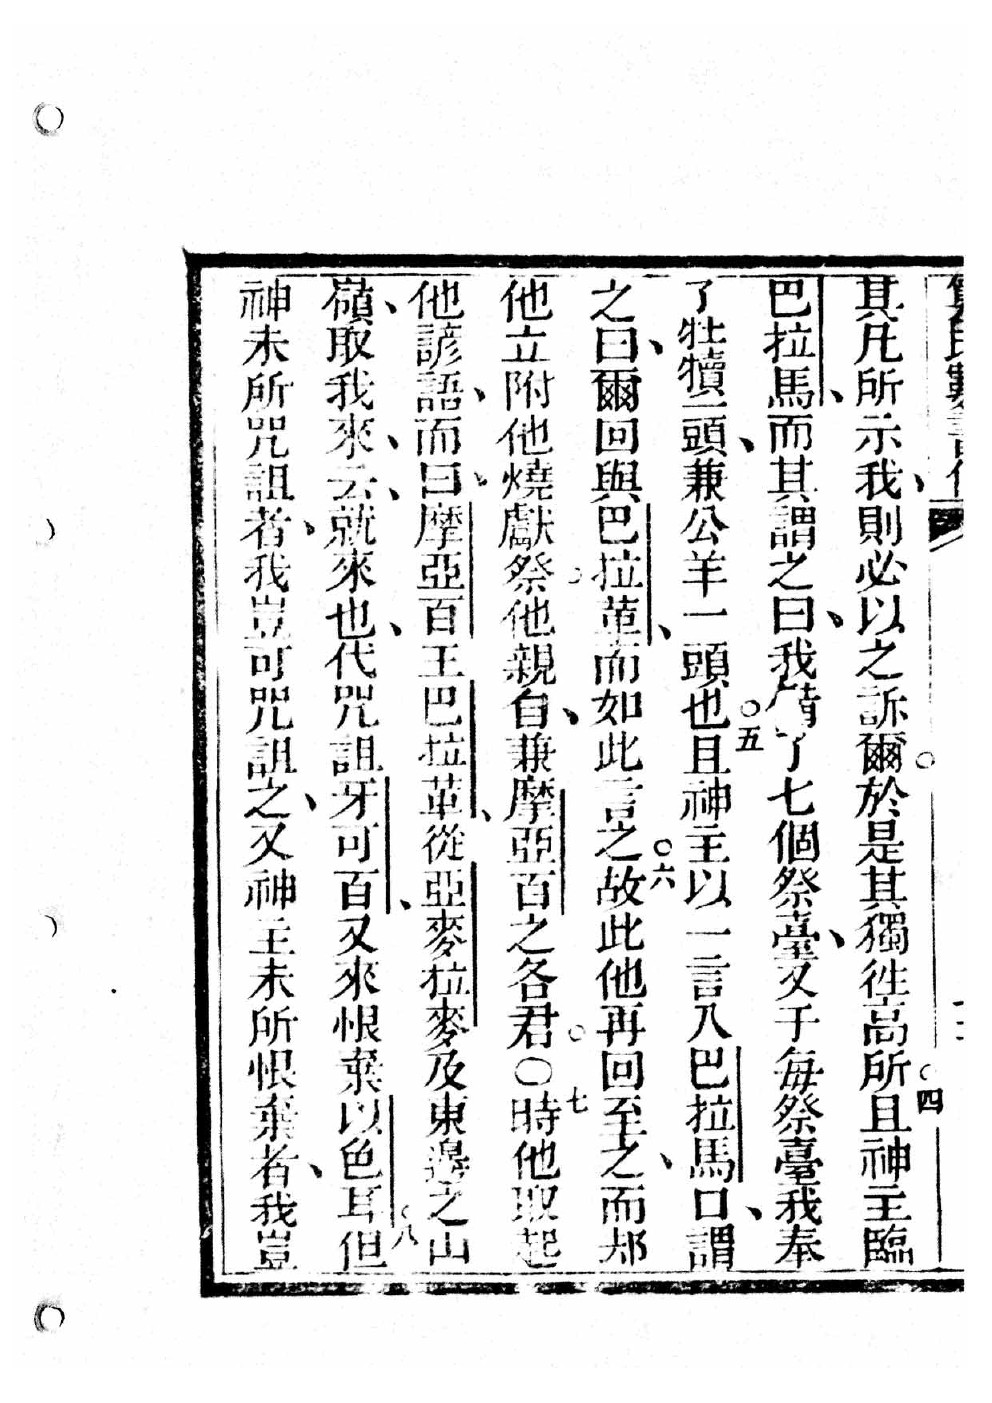 其凡所示我、則必以之訴爾○於是其獨徃高所○四且神主臨
巴拉馬、而其謂之曰、我備了七個祭臺、又于每祭臺我奉
了牡犢一頭、兼公羊一頭也○五且神主以一言入巴拉馬口、謂
之曰、爾回與巴拉革、而如此言之○六故此他再回至之、而却
他立附他燒獻祭、他親自、兼摩亞百之各君○○七時他取起
他諺語、而曰、摩亞百王巴拉革、從亞麥拉麥及東邊之山
嶺、取我來、云、就來也、代咒詛牙可百、又來恨棄以色耳○八但
神未所咒詛者、我豈可咒詛之、又神主未所恨棄者、我豈